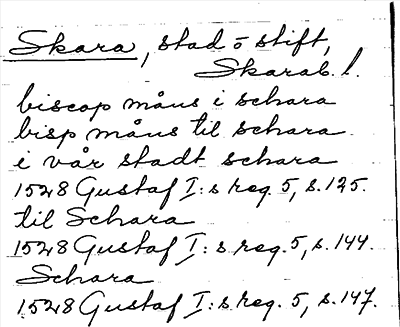 Skara, stad o stift,
Skarab. l.
biscop måns i schara
bisp måns til schara
i vår stadt schara
1528 Gustaf I:s reg. 5, s. 125.
til Schara
1528 Gustaf I:s reg. 5, s. 144.
Schara
1528 Gustaf I:s reg. 5, s. 147.